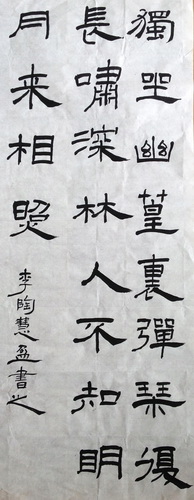 獨坐幽篁裏彈琴復
長嘯深林人不知明
月来相照
李陶慧盈書之